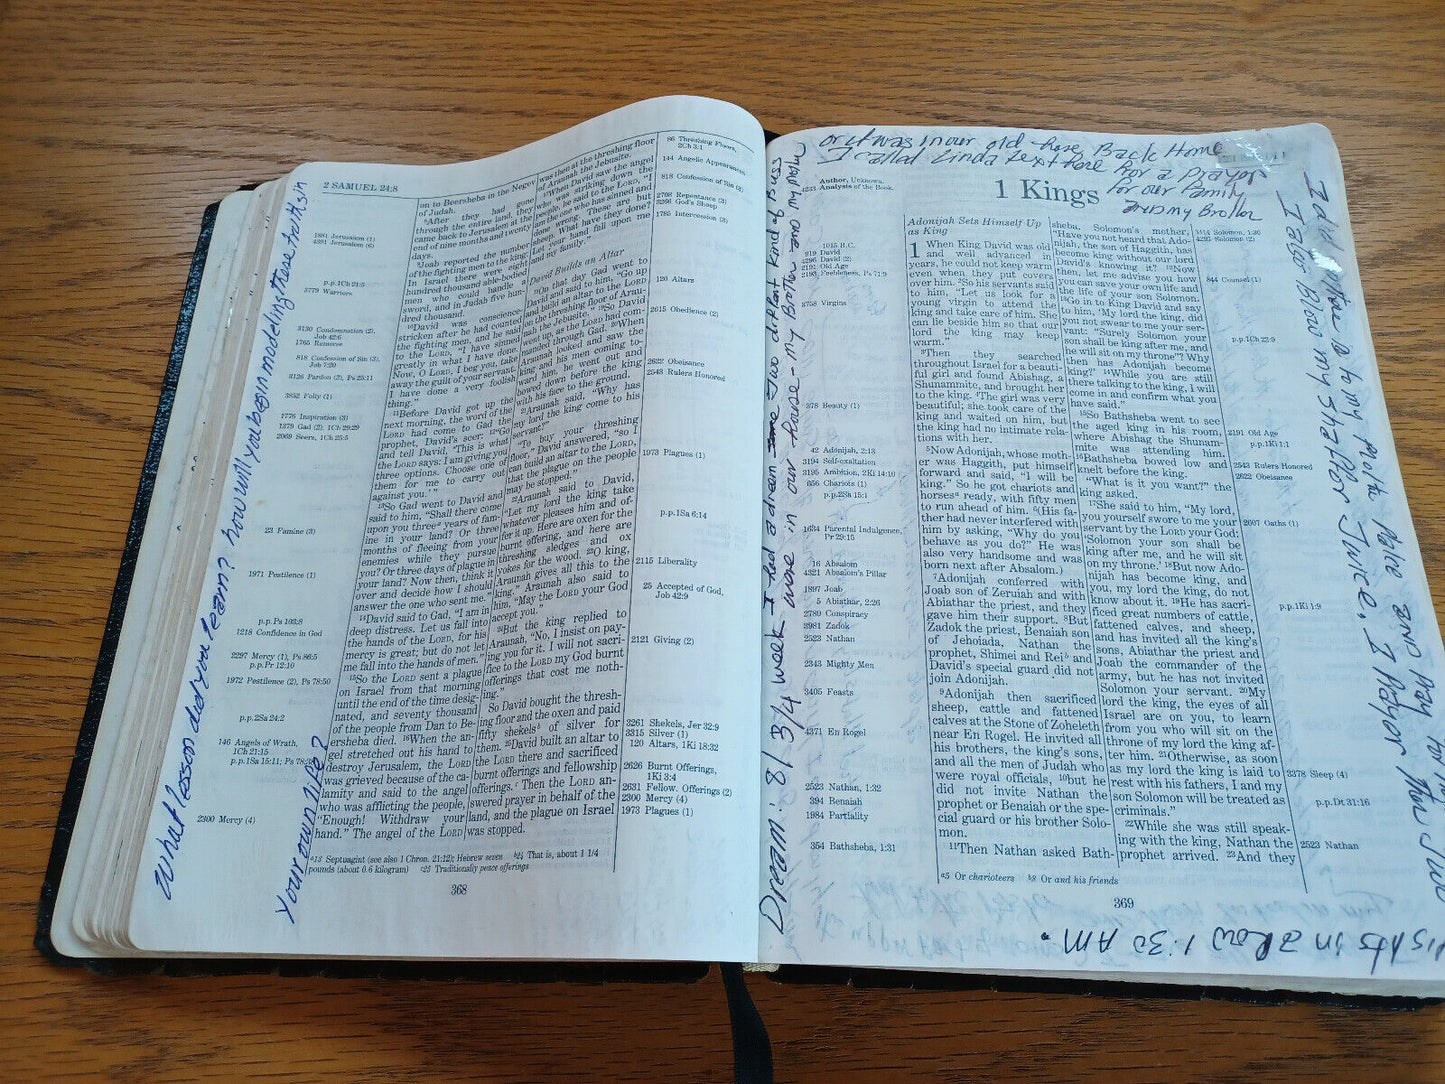 2 SAMUEL 24:8
1881 Jerusalem (1)
4391 Jerusalem (6)
p.p.1Ch 21:5
3779 Warriors
3130 Condemnation (2),
Job 42:6
1765 Remorse
818 Confession of Sin (3),
Job 7:20
3126 Pardon (2), Ps 25:11
3852 Folly (1)
1776 Inspiration (3)
1379 Gad (2), 1Ch 29:29
2069 Seers, 1Ch 25:5
23 Famine (3)
1971 Pestilence (1)
p.p.Ps 103:8
1218 Confidence in God
2297 Mercy (1), Ps 86:5
p.p.Pr 12:10
1972 Pestilence (2), Ps 78:50
p.p.2Sa 24:2
146 Angels of Wrath,
1Ch 21:15
p.p.1Sa 15:11; Ps 78:38
2300 Mercy (4)
on to Beersheba in the Negev
of Judah.
8After they had gone
through the entire land, they
came back to Jerusalem at the
end of nine months and twenty
days.
9Joab reported the number
of the fighting men to the king:
In Israel there were eight
hundred thousand able-bodied
men who could handle a
sword, and in Judah five hun-
dred thousand.
10David was conscience-
stricken after he had counted
the fighting men, and he said
to the LORD, "I have sinned
greatly in what I have done.
Now, O LORD, I beg you, take
away the guilt of your servant.
I have done a very foolish
thing."
11Before David got up the
next morning, the word of the
LORD had come to Gad the
prophet, David's seer: 12"Go
and tell David, 'This is what
the LORD says: I am giving you
three options. Choose one of
them for me to carry out
against you.'"
13So Gad went to David and
said to him, "Shall there come
upon you three a years of fam-
ine in your land? Or three
months of fleeing from your
enemies while they pursue
you? Or three days of plague in
your land? Now then, think it
over and decide how I should
answer the one who sent me."
14David said to Gad, "I am in
deep distress. Let us fall into
the hands of the LORD, for his
mercy is great; but do not let
me fall into the hands of men."
15So the LORD sent a plague
on Israel from that morning
until the end of the time desig-
nated, and seventy thousand
of the people from Dan to Be-
ersheba died. 16When the an-
gel stretched out his hand to
destroy Jerusalem, the LORD
was grieved because of the ca-
lamity and said to the angel
who was afflicting the people,
"Enough! Withdraw your
hand." The angel of the LORD
was then at the threshing floor
of Araunah the Jebusite.
17When David saw the angel
who was striking down the
people, he said to the LORD, "I
am the one who has sinned and
done wrong. These are but
sheep. What have they done?
Let your hand fall upon me
and my family."
David Builds an Altar
18On that day Gad went to
David and said to him, "Go up
and build an altar to the LORD
on the threshing floor of Arau-
nah the Jebusite." 19So David
went up, as the LORD had com-
manded through Gad. 20When
Araunah looked and saw the
king and his men coming to-
ward him, he went out and
bowed down before the king
with his face to the ground.
21Araunah said, "Why has
my lord the king come to his
servant?"
"To buy your threshing
floor," David answered, "so I
can build an altar to the LORD,
that the plague on the people
may be stopped."
22Araunah said to David,
"Let my lord the king take
whatever pleases him and of-
fer it up. Here are oxen for the
burnt offering, and here are
threshing sledges and ox
yokes for the wood. 23O king,
Araunah gives all this to the
king." Araunah also said to
him, "May the LORD your God
accept you."
24But the king replied to
Araunah, "No, I insist on pay-
ing you for it. I will not sacri-
fice to the LORD my God burnt
offerings that cost me noth-
ing."
So David bought the thresh-
ing floor and the oxen and paid
fifty shekels b of silver for
them. 25David built an altar to
the LORD there and sacrificed
burnt offerings and fellowship
offerings. c Then the LORD an-
swered prayer in behalf of the
land, and the plague on Israel
was stopped.
86 Threshing Floors,
2Ch 3:1
144 Angelic Appearances
818 Confession of Sin (3)
2706 Repentance (3)
3206 God's Sheep
1785 Intercession (3)
120 Altars
2615 Obedience (2)
2622 Obeisance
2543 Rulers Honored
1973 Plagues (1)
p.p.1Sa 6:14
2115 Liberality
25 Accepted of God,
Job 42:9
2121 Giving (2)
3261 Shekels, Jer 32:9
3315 Silver (1)
120 Altars, 1Ki 18:32
2626 Burnt Offerings,
1Ki 3:4
2631 Fellow. Offerings (2)
2300 Mercy (4)
1973 Plagues (1)
a13 Septuagint (see also 1 Chron. 21:12); Hebrew seven b24 That is, about 1 1/4
pounds (about 0.6 kilogram) c25 Traditionally peace offerings
368
What lesson did you learn? how will you begin modeling these truths in
your own life?
or it was in our old house Back Home
I called Linda text here for a prayer
for our family
and my Brother
Dream: 8/3/4 week I had a dream some two different kind of Buss
were in our house - my Brother and my mother
1 Kings
Author, Unknown.
4233 Analysis of the Book.
1015 B.C.
919 David
4296 David (2)
2191 Old Age
2193 Feebleness, Ps 71:9
3758 Virgins
378 Beauty (1)
42 Adonijah, 2:13
3194 Self-exaltation
3195 Ambition, 2Ki 14:10
656 Chariots (1)
p.p.2Sa 15:1
1634 Parental Indulgence,
Pr 29:15
16 Absalom
4321 Absalom's Pillar
1897 Joab
5 Abiathar, 2:26
2789 Conspiracy
3981 Zadok
2523 Nathan
2343 Mighty Men
3405 Feasts
4371 En Rogel
2523 Nathan, 1:32
394 Benaiah
1984 Partiality
354 Bathsheba, 1:31
Adonijah Sets Himself Up
as King
1 When King David was old
and well advanced in
years, he could not keep warm
even when they put covers
over him. 2So his servants said
to him, "Let us look for a
young virgin to attend the
king and take care of him. She
can lie beside him so that our
lord the king may keep
warm."
3Then they searched
throughout Israel for a beauti-
ful girl and found Abishag, a
Shunammite, and brought her
to the king. 4The girl was very
beautiful; she took care of the
king and waited on him, but
the king had no intimate rela-
tions with her.
5Now Adonijah, whose moth-
er was Haggith, put himself
forward and said, "I will be
king." So he got chariots and
horses a ready, with fifty men
to run ahead of him. 6(His fa-
ther had never interfered with
him by asking, "Why do you
behave as you do?" He was
also very handsome and was
born next after Absalom.)
7Adonijah conferred with
Joab son of Zeruiah and with
Abiathar the priest, and they
gave him their support. 8But
Zadok the priest, Benaiah son
of Jehoiada, Nathan the
prophet, Shimei and Rei b and
David's special guard did not
join Adonijah.
9Adonijah then sacrificed
sheep, cattle and fattened
calves at the Stone of Zoheleth
near En Rogel. He invited all
his brothers, the king's sons,
and all the men of Judah who
were royal officials, 10but he
did not invite Nathan the
prophet or Benaiah or the spe-
cial guard or his brother Solo-
mon.
11Then Nathan asked Bath-
sheba, Solomon's mother,
"Have you not heard that Ado-
nijah, the son of Haggith, has
become king without our lord
David's knowing it? 12Now
then, let me advise you how
you can save your own life and
the life of your son Solomon.
13Go in to King David and say
to him, 'My lord the king, did
you not swear to me your ser-
vant: "Surely Solomon your
son shall be king after me, and
he will sit on my throne"? Why
then has Adonijah become
king?' 14While you are still
there talking to the king, I will
come in and confirm what you
have said."
15So Bathsheba went to see
the aged king in his room,
where Abishag the Shunam-
mite was attending him.
16Bathsheba bowed low and
knelt before the king.
"What is it you want?" the
king asked.
17She said to him, "My lord,
you yourself swore to me your
servant by the LORD your God:
'Solomon your son shall be
king after me, and he will sit
on my throne.' 18But now Ado-
nijah has become king, and
you, my lord the king, do not
know about it. 19He has sacri-
ficed great numbers of cattle,
fattened calves, and sheep,
and has invited all the king's
sons, Abiathar the priest and
Joab the commander of the
army, but he has not invited
Solomon your servant. 20My
lord the king, the eyes of all
Israel are on you, to learn
from you who will sit on the
throne of my lord the king af-
ter him. 21Otherwise, as soon
as my lord the king is laid to
rest with his fathers, I and my
son Solomon will be treated as
criminals."
22While she was still speak-
ing with the king, Nathan the
prophet arrived. 23And they
3414 Solomon, 1:30
4295 Solomon (2)
844 Counsel (1)
p.p.1Ch 22:9
2191 Old Age
p.p.1Ki 1:1
2543 Rulers Honored
2622 Obeisance
2607 Oaths (1)
p.p.1Ki 1:9
2378 Sleep (4)
p.p.Dt 31:16
2523 Nathan
a5 Or charioteers b8 Or and his friends
369
I also Blow my Shaffer Twice. I
in a Row 1:30 AM.